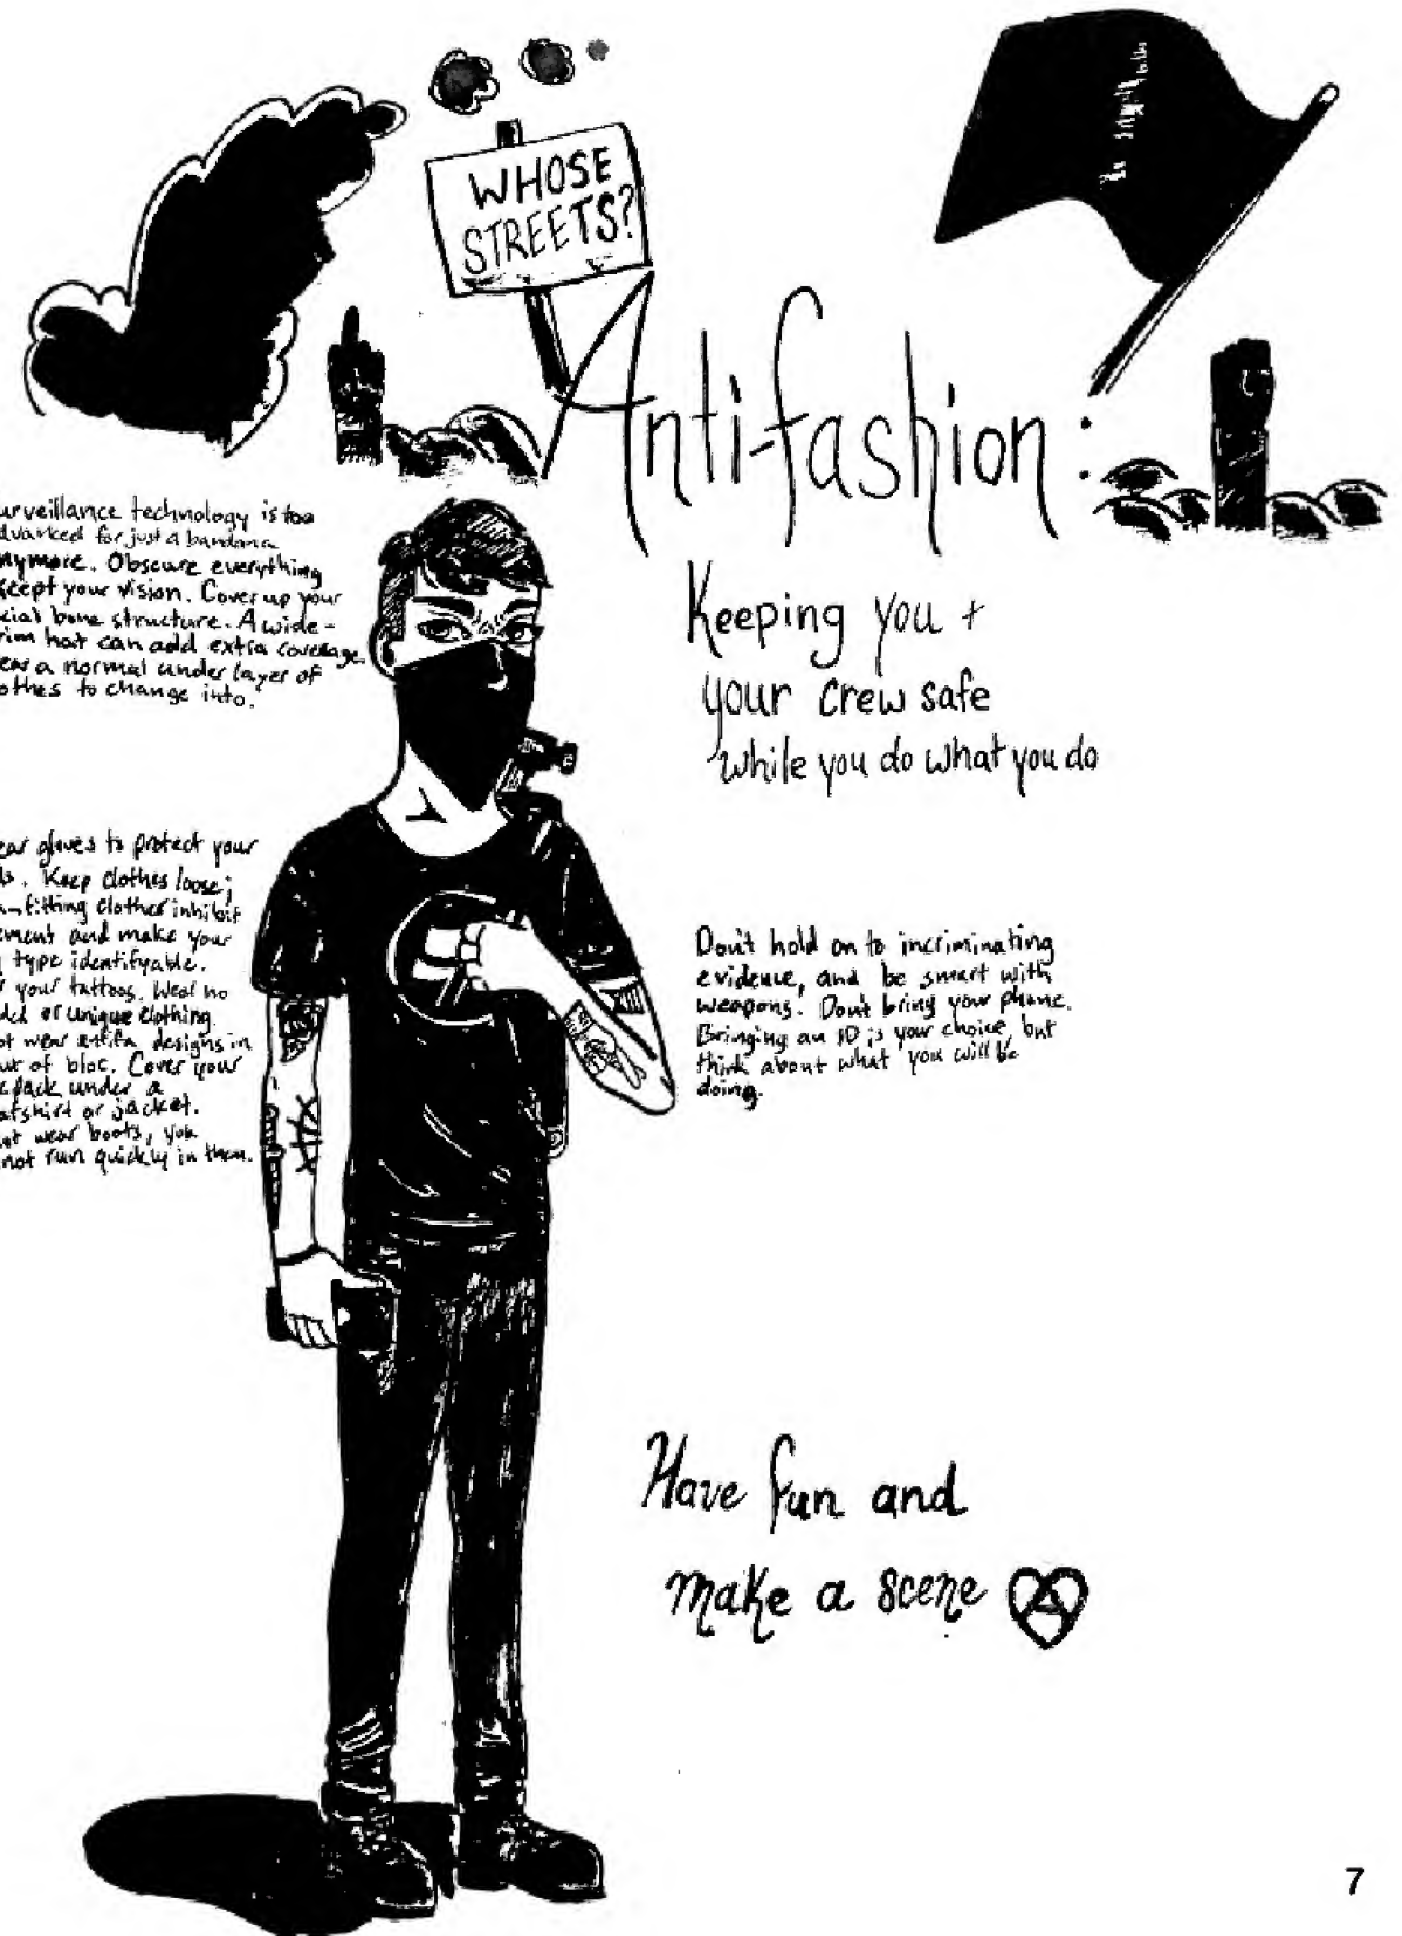 WHOSE
STREETS?
Anti-fashion:
Keeping you +
your crew safe
while you do what you do
urveillance technology is too
dvanced for just a bandana
nymore. Obscure everything
xcept your vision. Cover up your
cial bone structure. A wide-
rim hat can add extra coverage.
ear a normal under layer of
othes to change into.
ear gloves to protect your
ds. Keep clothes loose;
fitting clothes inhibit
ement and make your
type identifyable.
r your tattoos. Wear no
ded or unique clothing
ot wear antifa designs in
ut of bloc. Cover your
ckpack under a
atshirt or jacket.
not wear boots, you
not run quickly in them.
Don't hold on to incriminating
evidence, and be smart with
weapons. Don't bring your phone.
Bringing an ID is your choice, but
think about what you will be
doing.
Have fun and
make a scene
7